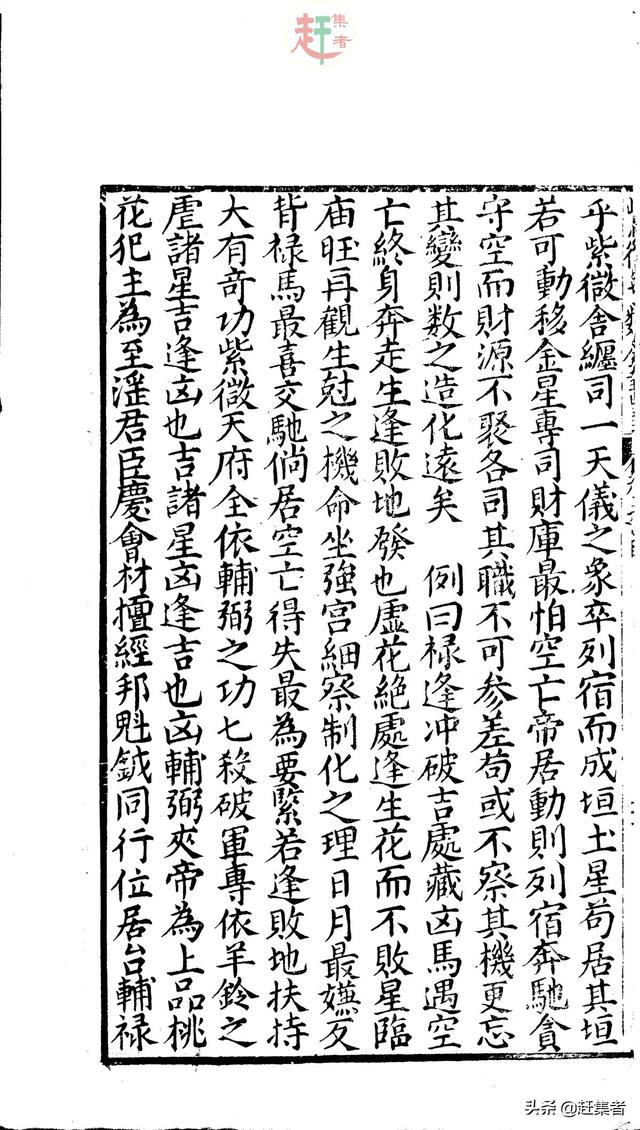 赶集者
乎紫微舍纏司一天儀之象卒列宿而成垣土星苟居其垣
若可動移金星專司財庫最怕空亡帝居動則列宿奔馳貪
守空而財源不聚各司其職不可参差苟或不察其機更忘
其變則数之造化遠矣　例曰禄逢冲破吉處藏凶馬遇空
亡終身奔走生逢敗地發也虛花絶處逢生花而不敗星臨
庙旺再觀生尅之機命坐強宫細察制化之理日月最嫌反
背禄馬最喜交馳倘居空亡得失最為要緊若逢敗地扶持
大有奇功紫微天府全依輔弼之功七殺破軍專依羊鈴之
虐諸星吉逢凶也吉諸星凶逢吉也凶輔弼夾帝為上品桃
花犯主為至淫君臣慶會材擅經邦魁鉞同行位居台輔禄
头条 @赶集者